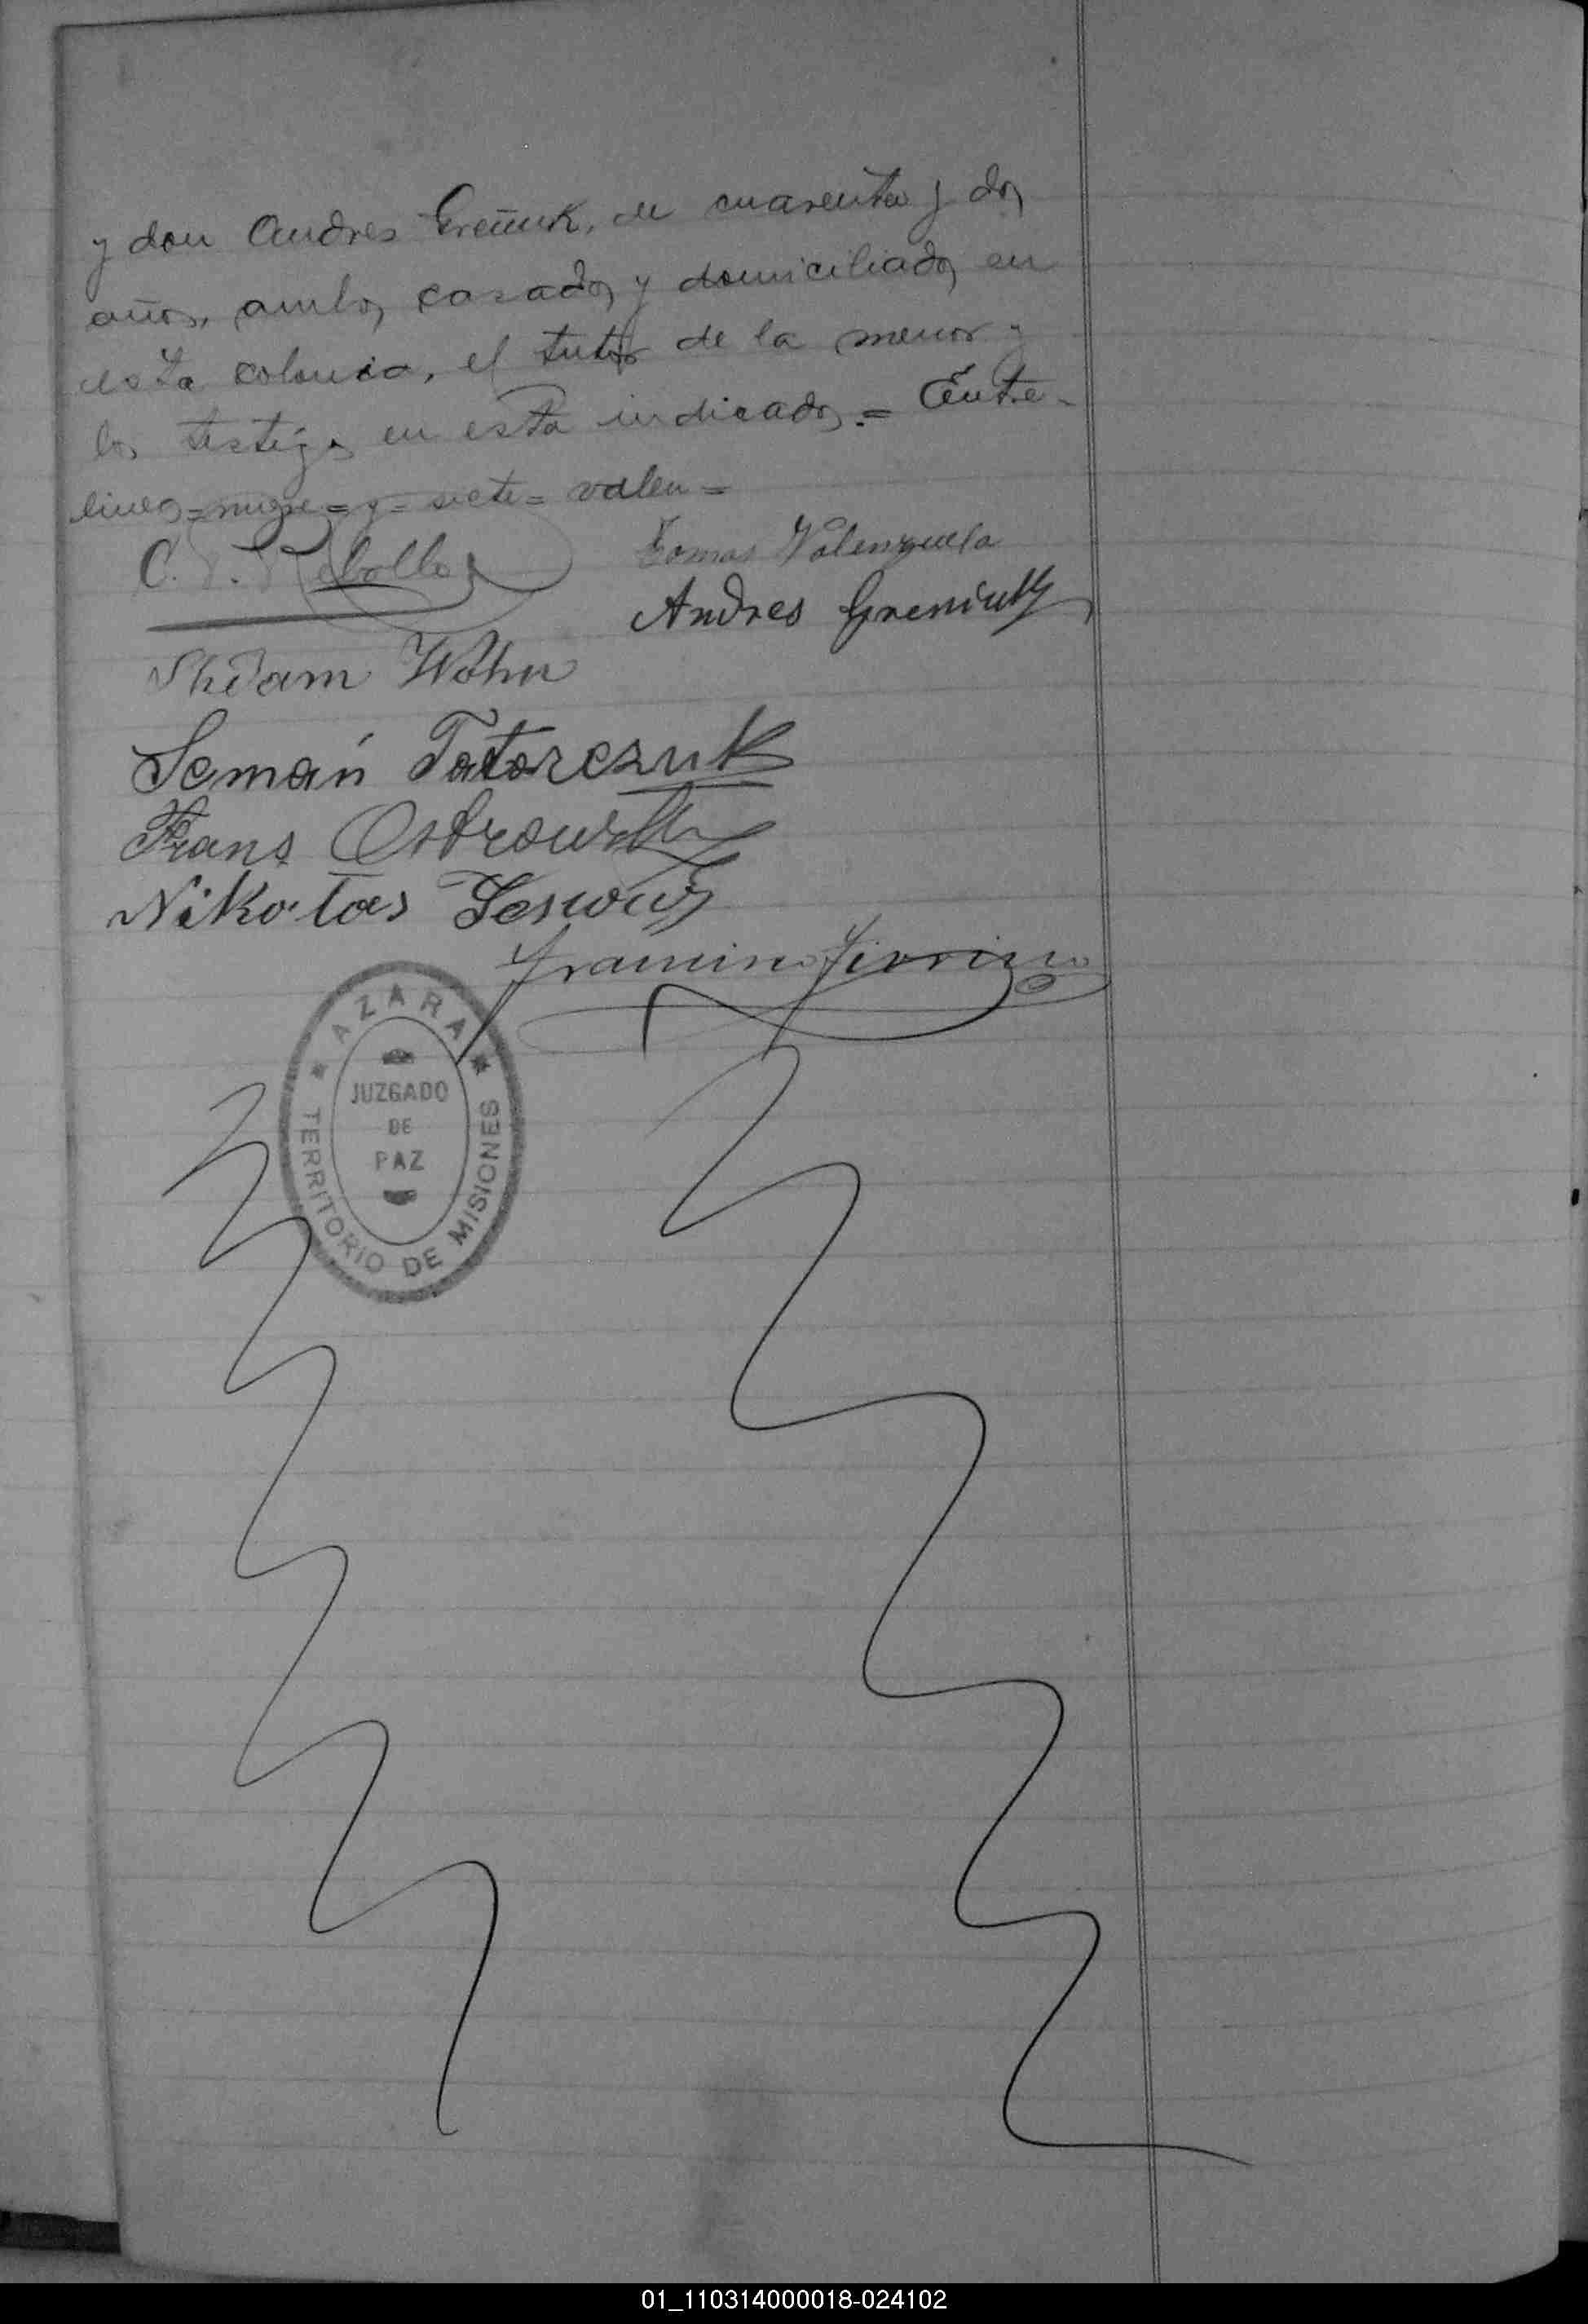 y don Andres Greñuk, de cuarenta y dos
años, ambos casados y domiciliados en
esta colonia, el tutor de la menor y
los testigos en esta indicados.= Entre-
lineas=nueve=y=siete=valen=
C. Rebollo
Tomas Valenzuela
Andres Greniuk
Wohn
Semán Tatarczuk
Frans Ostrowski
Nikolas
AZARA
JUZGADO
DE
PAZ
TERRITORIO DE MISIONES
01_110314000018-024102